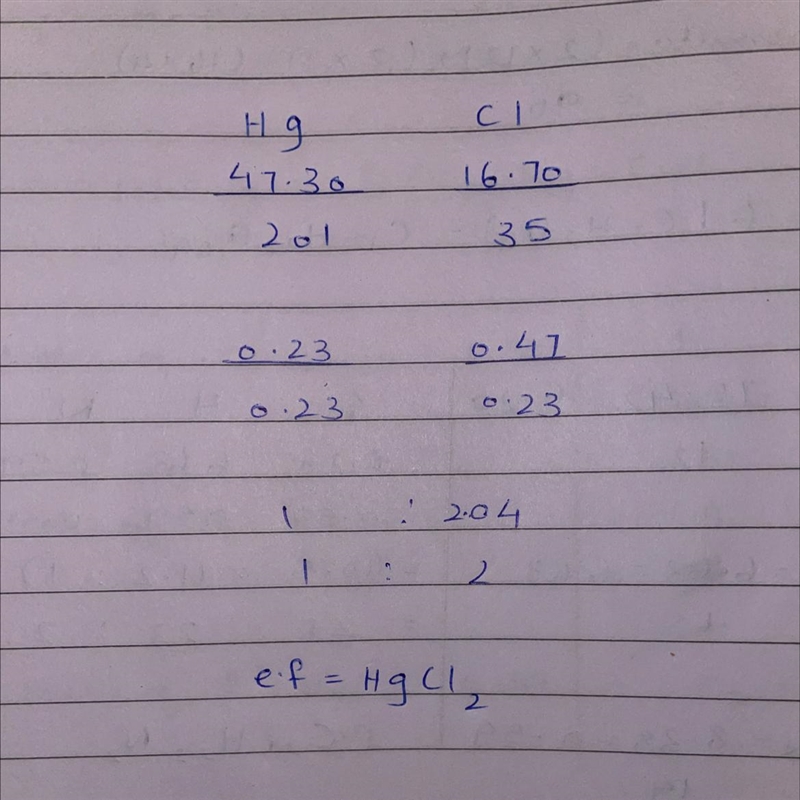 Hg Cl
47.30 16.70
201 35
0.23 0.47
0.23 0.23
1 : 2.04
1 : 2
e.f = HgCl₂